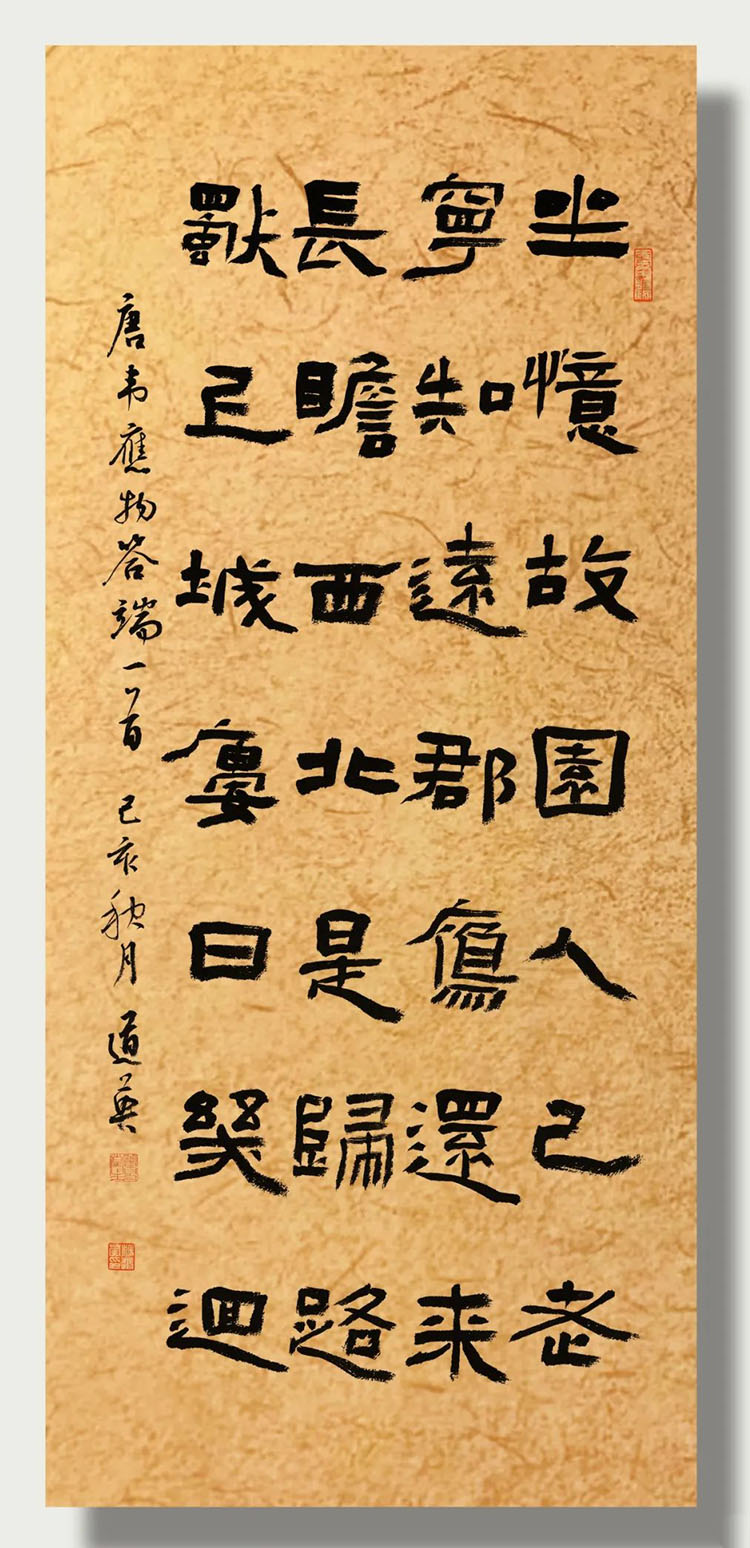 坐憶故園人已老
寧知遠郡鴈還来
長瞻西北是歸路
獨上城廔日幾迴
唐韦應物答端一首 己亥秋月 道英